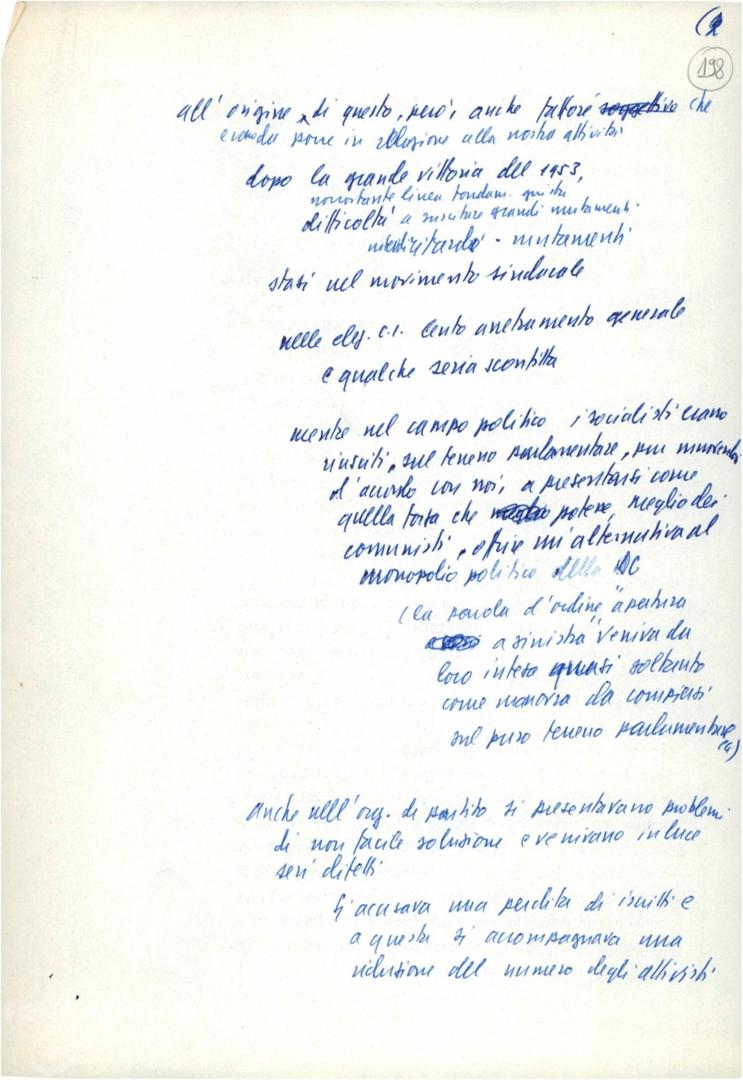 (2
198
all'origine di questo, però, anche fattore che
era da porre in relazione alla nostra attività
dopo la grande vittoria del 1953,
nonostante linea fondam. giusta
difficoltà a suscitare grandi mutamenti
mutamenti
stasi nel movimento sindacale
nelle elez. c.i. lento arretramento generale
e qualche seria sconfitta
mentre nel campo politico i socialisti erano
riusciti, sul terreno parlamentare, pur muovendosi
d'accordo con noi, a presentarsi come
quella forza che potesse, meglio dei
comunisti, offrire un'alternativa al
monopolio politico della DC
(la parola d'ordine "apertura
a sinistra" veniva da
loro intesa quasi soltanto
come manovra da compiersi
sul puro terreno parlamentare
Anche nell'org. di partito si presentavano problemi
di non facile soluzione e venivano in luce
seri difetti
Si accusava una perdita di iscritti e
a questa si accompagnava una
riduzione del numero degli attivisti